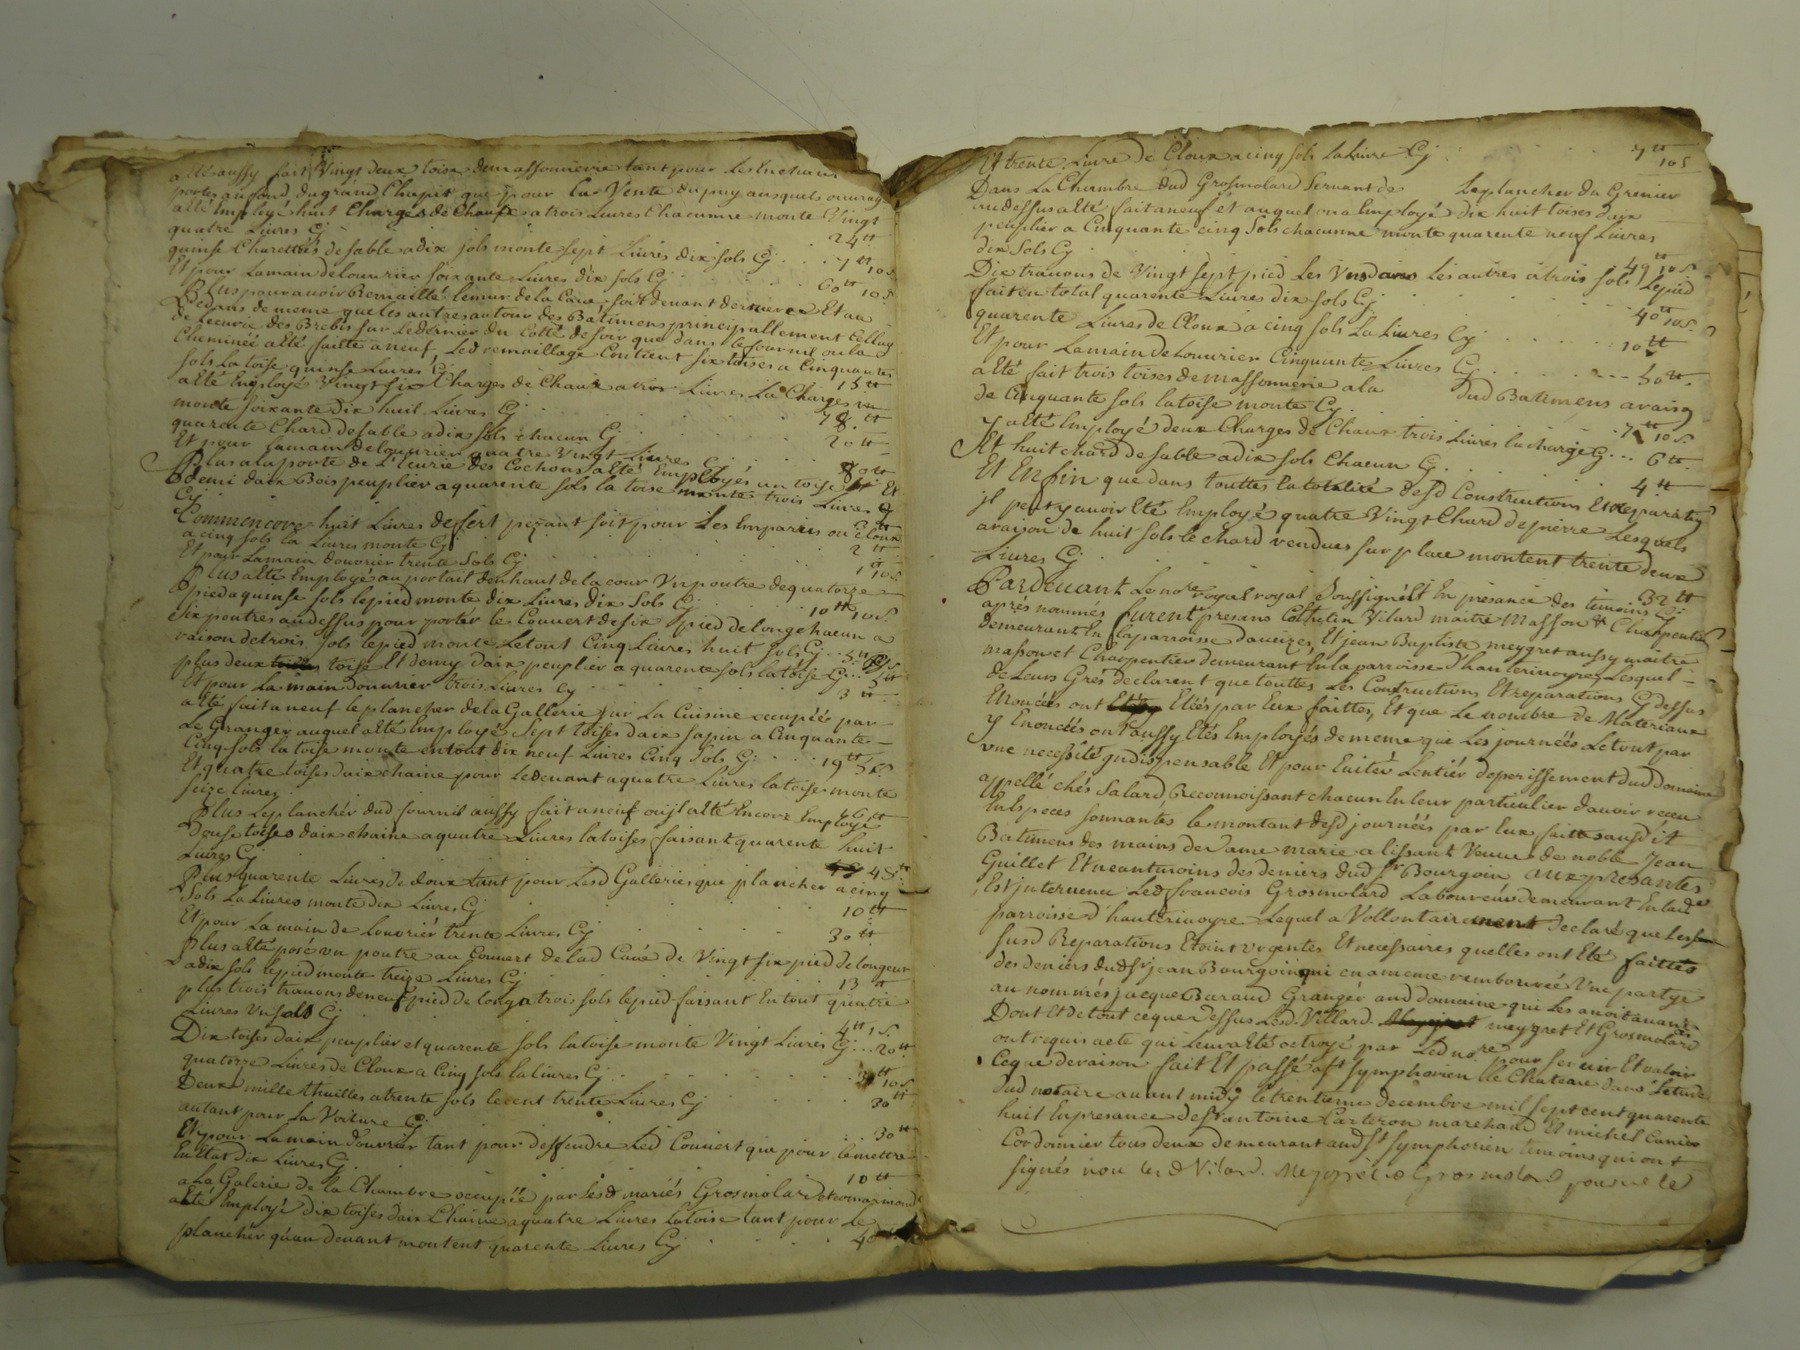 a Eté aussy fait Vingt deux toise demassonnerie tant pour Les
portes au fond du grand Chapit que pour La Vente du puy ausquels ouvrage
a été Employé huit Charges de Chaux a trois Livres Chacunne monte Vingt
quatre Livres Cy 24 tt
quinse Charettes de sable a dix sols monte sept Livres dix sols Cy 7 tt 10 s
Et pour La main de Louvrier soixante Livres dix sols Cy 60 tt 10 s
Plus pour avoir Remaillé le mur de la Cave soit devant derriere Et au
Dedans de meme que les autres autour des Batimens principallement Celluy
de Lecurie des Brebis sur Le dernier du Cotté de soir que dans le fournil ou la
Cheminée a Eté faitte a neuf, Led remaillage Contient six toises a Cinquantes
sols La toise quinse Livres Cy 15 tt
a Eté Employé Vingt six Charges de Chaux a trois Livres La Charges
monte soixante dix huit Livres Cy 78 tt
quarente Chard de sable a dix sols chacun Cy 20 tt
Et pour La main de Louvrier quatre Vingt Livres Cy 80 tt
Plus a La porte de L'Ecurie des Cochons a Eté Employés un toise Et
demi daix Bois peuplier a quarente sols la toise monte trois Livres
Cy 3 tt
Commencore huit Livres de fert pezant soit pour Les Emparres ou Cloux
a cinq sols la Livres monte Cy 2 tt
Et pour La main douvrier trente Sols Cy 1 tt 10 s
Plus a Eté Employé au portail den haut de la cour Un poutre de quatorze
pied a quinse sols le pied monte dix Livres dix Sols Cy 10 tt 10 s
six poutres au dessus pour porter le Couvert de six pied de long chacun a
raison de trois sols le pied monte Le tout Cinq Livres huit sols Cy 5 tt 8 s
plus deux toise Et demy daix peuplier a quarente sols la toise Cy 5 tt
Et pour La main douvrier trois Livres Cy 3 tt
a Eté fait a neuf le plancher de la Gallerie sur La Cuisine occupéé par
Le Granger auquel a Eté Employé Sept toises daix sapin a Cinquante
Cinq sols la toise monte en tout dix neuf Livres Cinq Sols Cy 19 tt 5 s
Et quatre toises daix chaine pour Le devant a quatre Livres la toise monte
seize Livres 16 tt
Plus Le plancher dud fournil aussy fait a neuf ou il a Eté Encore Employé
Douse toises daix chaine a quatre Livres la toises faisant quarente huit
Livres Cy 48 tt
Plus quarente Livres de cloux tant pour Lesd Galleries que plancher a cinq
Sols La Livres monte dix Livres Cy 10 tt
Et pour La main de Louvriér trente Livres Cy 30 tt
Plus a Eté posé un poutre au Couvert de lad Cave de Vingt six pied de longeur
a dix sols le pied monte treize Livres Cy 13 tt
plus trois travons de neuf pied de long a trois sols le pied faisant En tout quatre
Livres Un sols Cy 4 tt 1 s
Dix toises daix peuplier et quarente sols la toise monte Vingt Livres Cy 20 tt
quatorze Livres de Cloux a Cinq sols la livres Cy 3 tt 10 s
Deux mille thuilles a trente sols le cent trente Livres Cy 30 tt
autant pour La Voiture Cy 30 tt
Et pour La main d'ouvrier tant pour dessendre Led Couvert que pour le mettre
En Etat dix Livres Cy 10 tt
a La Galerie de la Chambre occupéé par Lesd mariés Grosmolard
a Eté Employé dix toises daix Chaine a quatre Livres La toise tant pour le
plancher qu'au devant montent quarente Livres Cy 40
Et trente Livre de Cloux a cinq sols La Livre Cy 7 tt 10 s
Dans La Chambre dud Grosmolard Servant des Le plancher du Grenier
au dessus a Eté fait a neuf et auquel on a Employé dix huit toises daix
peuplier a Cinquante cinq Sols chacunne monte quarente neuf Livres
dix Sols Cy 49 tt 10 s
Dix travons de Vingt sept pied Les Uns dans Les autres a trois sols Le pied
fait en total quarente Livres dix sols Cy 40 tt 10 s
quarente Livres de Cloux a cinq sols La Livres Cy 10 tt
Et pour La main de Louvrier Cinquante Livres Cy 50 tt
a Eté fait trois toises de massonnerie a la dud Batimens a raison
de Cinquante sols la toise monte Cy 7 tt 10 s
y a Eté Employé deux Charges de Chaux trois Livres la charge Cy 6 tt
Et huit chard de sable a dix sols Chacun Cy 4 tt
Et Enfin que dans touttes la totalité desd Constructions Et reparations
il peut y avoir Eté Employé quatre Vingt Chard de pierre Lesquels
a raison de huit sols le chard vendues sur place montent trente deux
Livres Cy 32 tt
Pardevant Le nore royal royal soussigné Et En presance des temoins Cy
aprés nommés furent presans Cothelin Vilard maitre Masson & Charpentier
demeurant En la parroisse daveizes, Et jean Baptiste meygret aussy maitre
masson et Charpentier demeurant En la parroisse d'hauterivoyre Lesquel
de Leurs Grés declarent que touttes Les Contructions Et reparations Cy dessus
Enoncées ont Etéés par Eux faittes, Et que Le nombre de Materiaux
y Enoncéés ont aussy Etés Employés de meme que Les journéés Le tout par
une necessité yndispensable Et pour Eviter Lentiér deperissement dud Domaine
appellé chés Salard, Reconnoissant chacun En leur particulier davoir receu
En Especes sonnantes le montant desd journéés par Eux faittes ausd it
Batimens des mains de dame marie alissant Veuve de noble Jean
Guillet Et neantmoins des deniers dud Sr Bourgoin aux presantes
Est intervenu Led francois Grosmolard Laboureur demeurant En lad
parroisse d'hauterivoyre Lequel a Vollontairement declaré que Les
susd Reparations Etoint urgentes Et necessaires quelles ont Eté faittes
des deniers dud Sr jean Bourgoin qui en a meme rembourcé Une partye
au nommés jacque Baraud Grangér aud domaine qui Les avoit avancé
Dont Et de tout ce que dessus Lesd Villard meygret Et Grosmolard
ont requis acte qui Leur a Eté octroyé par Led nore pour servir Et valoir
Ce que de raison fait Et passé a St symphorien le Chateau dans Letude
dud notaire avant midy le trentieme decembre mil sept cent quarente
huit En presance de Sr antoine Carteron marchand Et michel
Cordonnier tous deux demeurant aud St symphorien temoins qui ont
signés non Led Vilard. Meygret & Grosmolard pour ne le